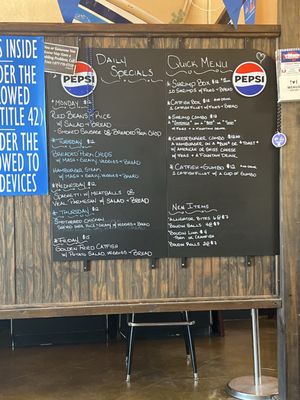 S INSIDE
DER THE
LOWED
TITLE 42)
UND
DER THE
OWED TO
DEVICES
PEPSI
PEPSI
Daily
Specials
*Monday $12
Red Beans & Rice
w/ Salad + Bread
Smoked Sausage or Breaded Pork Chop
*Tuesday $12
Breaded Pork Chops
w/ Mash + Gravy, Veggies + Bread
Hamburger Steak
w/ Mash + Gravy, Veggies + Bread
*Wednesday $12
Spaghetti w/ Meatballs or
Veal Parmesan w/ Salad + Bread
*Thursday $12
Smothered Chicken
w/ Bread
*Friday
Golden Fried Catfish
w/ Potato Salad, Veggies + Bread
Quick Menu
*Shrimp Box
10 Shrimps w/ Fries + Bread
*Catfish Box
1 Catfish Fillet w/ Fries + Bread
*Shrimp Combo
w/ Fries + a Fountain Drink
*Cheeseburger Combo
A Hamburger, on a "Bun" or "Toast"
w/ American or Swiss Cheese
w/ Fries + a Fountain Drink
*Catfish + Gumbo $12
1 Catfish Fillet w/ a Cup of Gumbo
New Items
Alligator Bites
Boudin Balls
Boudin Link
Pork or Crawfish
Boudin Rolls